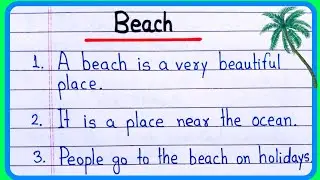 Beach
1. A beach is a very beautiful
place.
2. It is a place near the ocean.
3. People go to the beach on holidays.